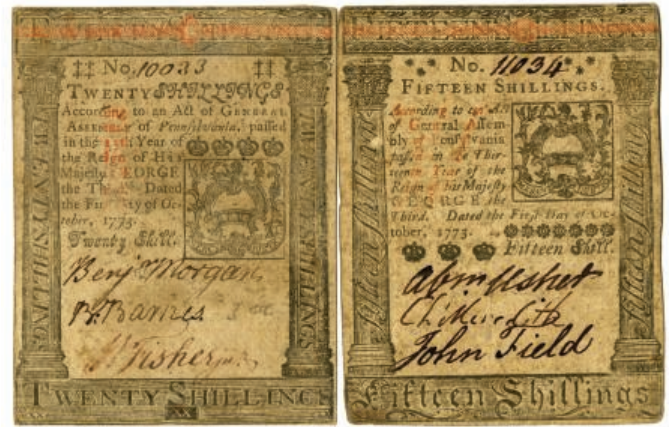 TWENTY SHILLINGS
No. 10033
TWENTY SHILLINGS
According to an Act of GENERAL
ASSEMBLY of Pennsylvania, passed
in the Year of
the Reign of His
Majesty GEORGE
the Third. Dated
the First Day of Oc-
tober, 1773.
Twenty Shill.
Benj Morgan
B. Barnes
Fisher
TWENTY SHILLINGS
TWENTY SHILLINGS
TWENTY SHILLINGS
FIFTEEN SHILLINGS
No. 11034
FIFTEEN SHILLINGS.
According to an Act
of General Assem-
bly of Pennsylvania
passed in the Thir-
teenth Year of the
Reign of his Majesty
GEORGE the
Third. Dated the First Day of Oc-
tober, 1773.
Fifteen Shill.
Abm Usher
Ch Meredith
John Field
Fifteen Shillings
Fifteen Shillings
Fifteen Shillings